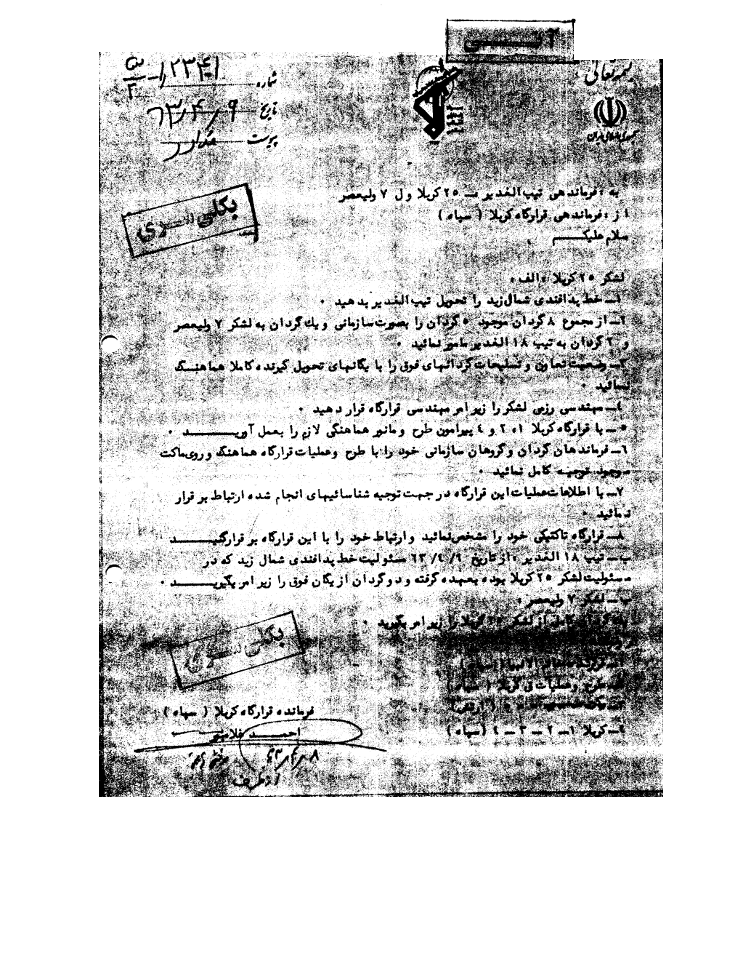 آنی
بسمه تعالی
شماره ۱۲۳۴۱
تاریخ ۶۳/۴/۹
پیوست ندارد
جمهوری اسلامی ایران
بکلی سری
به ، فرماندهی تیپ الغدیر ــ ۲۵ کربلا و ل ۷ ولیعصر
از ، فرماندهی قرارگاه کربلا ( سپاه )
سلام علیکم
لشکر ۲۵ کربلا ، الف ،
۱ــ خط پدافندی شمال زید را تحویل تیپ الغدیر بدهید ۰
۲ــ از مجموع ۸ گردان موجود ۵ گردان را بصورت سازمانی و یك گردان به لشکر ۷ ولیعصر
و ۲ گردان به تیپ ۱۸ الغدیر مامور نمائید ۰
۳ــ وضعیت تعاون و تسلیحات گردانهای فوق را با یگانهای تحویل گیرنده کاملا هماهنگ
نمائید ۰
۴ــ مهندسی رزمی لشکر را زیر امر مهندسی قرارگاه قرار دهید ۰
۵ ــ با قرارگاه کربلا ۱ ، ۲ و ٤ پیرامون طرح و مانور هماهنگی لازم را بعمل آورید ۰
۶ــ فرماندهان گردان و گروهان سازمانی خود را با طرح و عملیات قرارگاه هماهنگ و روی ماکت
موجود توجیه کامل نمائید ۰
۷ــ با اطلاعات عملیات این قرارگاه در جهت توجیه شناسائیهای انجام شده ارتباط برقرار
نمائید ۰
۸ــ قرارگاه تاکتیکی خود را مشخص نمائید و ارتباط خود را با این قرارگاه برقرار کنید
ب ــ تیپ ۱۸ الغدیر ، از تاریخ ۶۳/٤/۹ مسئولیت خط پدافندی شمال زید که در
مسئولیت لشکر ۲۵ کربلا بوده بعهده گرفته و دو گردان از یگان فوق را زیر امر بگیرید ۰
لشکر ۷ ولیعصر ،
لشکر ۲۵ کربلا را زیر امر بگیرید ۰
بکلی سری
طرح و عملیات ق کربلا ( سپاه )
کربلا ۱ــ ۲ ــ ۳ ــ ٤ ( سپاه )
فرمانده قرارگاه کربلا ( سپاه )
احمد غلامپور
از طرف